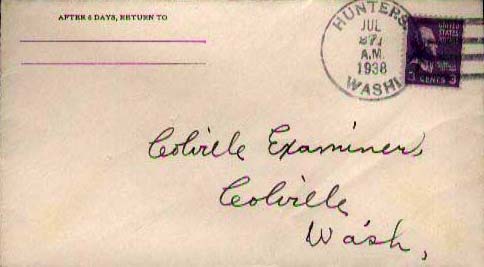 AFTER 5 DAYS, RETURN TO
HUNTERS
JUL
A.M.
1938
WASH
UNITED
STATES
3 CENTS 3
Colville Examiner,
Colville
Wash,